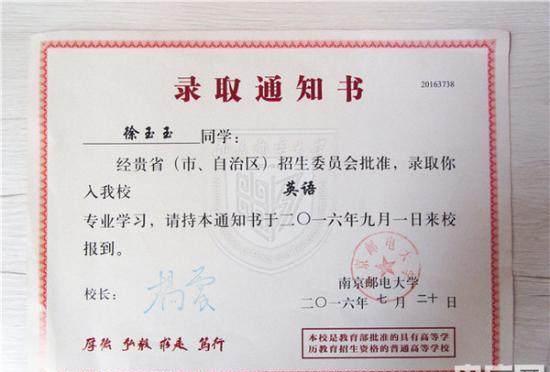 录取通知书
20163738
徐玉玉同学：
经贵省（市、自治区）招生委员会批准，录取你
入我校 英语
专业学习，请持本通知书于二〇一六年九月一日来校
报到。
校长：
南京邮电大学
二〇一六年七月二十日
南京邮电大学
厚德 弘毅 求是 笃行
本校是教育部批准的具有高等学
历教育招生资格的普通高等学校